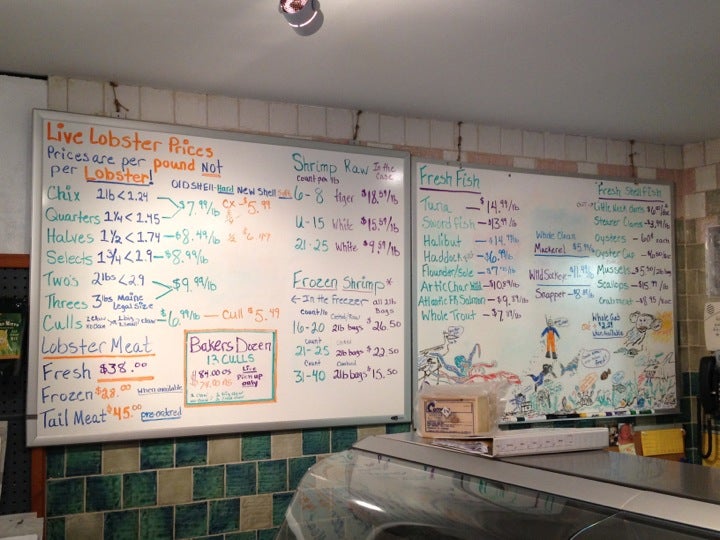 Live Lobster Prices
Prices are per pound Not
per Lobster!
OLD SHELL-Hard New Shell Soft
Chix 1lb < 1.24
Quarters 1¼ < 1.45 $7.99/lb $5.99
Halves 1½ < 1.74 $8.49/lb ½ $6.49
Selects 1¾ < 2.9 $8.99/lb
Two's 2lbs < 2.9
Threes 3lbs Maine Legal size $9.99/lb
Culls $6.99/lb - Cull $5.49
Lobster Meat
Fresh $38.00
Frozen $28.00 when available
Tail Meat $45.00 pre-ordered
Bakers Dozen
13 CULLS
Live
Pick up
only
Shrimp Raw In the Case
count per lb
6-8 tiger $18.59/lb
U-15 White $15.59/lb
21-25 White $9.59/lb
Frozen Shrimps*
← In the Freezer all 2lb Bags
16-20 2lb bags $26.50
21-25 2lb bags $22.50
31-40 2lb bags $15.50
Fresh Fish
Tuna - $14.99/lb
Swordfish - $13.99/lb
Halibut - $14.99/lb
Haddock - $6.99/lb
Flounder/Sole - $7.99/lb
Artic Char - $10.89/lb
Atlantic FR Salmon - $9.89/lb
Whole Trout - $7.89/lb
Whole Clean
Mackerel $5.99/lb
Wild Sockeye
Snapper
Fresh Shellfish
Little Neck clams
Steamer Clams $3.99/lb
Oysters - 60¢ each
Oyster Cup
Mussels $5.50/2lb bag
Scallops $15.99/lb
Crabmeat
Whole